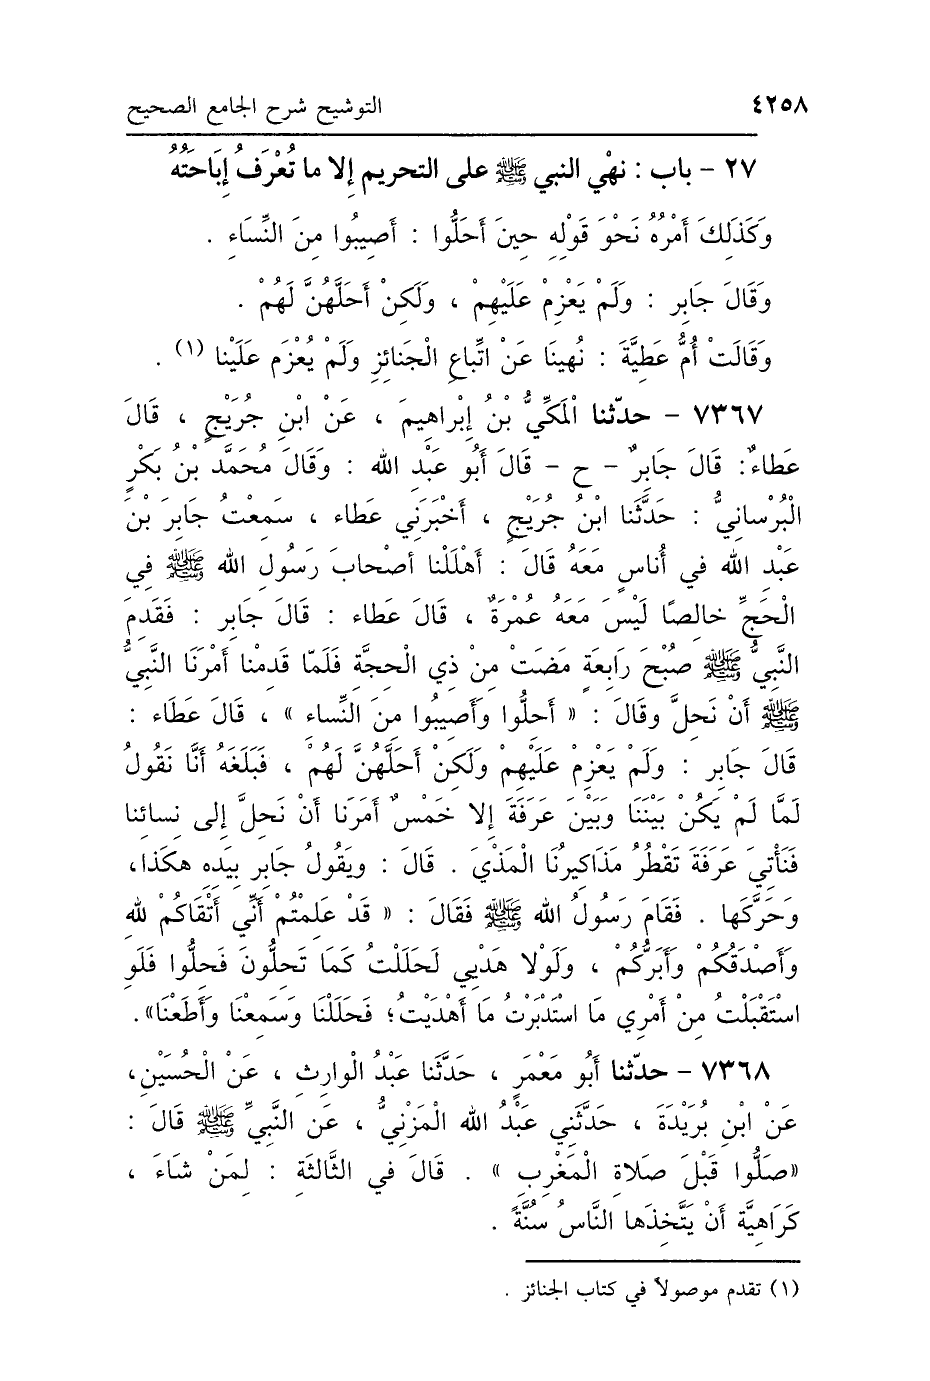 ٤٢٥٨ التوشيح شرح الجامع الصحيح
٢٧ - باب : نهْي النبي ﷺ على التحريم إلا ما تُعْرَفُ إِبَاحَتُهُ
وَكَذَلِكَ أَمْرُهُ نَحْوَ قَوْلِهِ حِينَ أَحَلُّوا : أَصِيبُوا مِنَ النِّسَاءِ .
وَقَالَ جَابِر : وَلَمْ يَعْزِمْ عَلَيْهِمْ ، وَلَكِنْ أَحَلَّهُنَّ لَهُمْ .
وَقَالَتْ أُمُّ عَطِيَّةَ : نُهِينَا عَنْ اتِّباعِ الْجَنائِزِ وَلَمْ يُعْزَم عَلَيْنا (١) .
٧٣٦٧ - حدّثنا الْمَكِّيُّ بْنُ إِبْراهِيمَ ، عَنْ ابْنِ جُرَيْجٍ ، قَالَ
عَطاءٌ: قَالَ جَابِرٌ - ح - قَالَ أَبُو عَبْدِ الله : وَقَالَ مُحَمَّد بْنُ بَكْرٍ
الْبُرْسانِيُّ : حَدَّثَنا ابْنُ جُرَيْجٍ ، أَخْبَرَنِي عَطاء ، سَمِعْتُ جَابِرَ بْنَ
عَبْدِ الله في أُناسٍ مَعَهُ قَالَ : أَهْلَلْنا أصْحابَ رَسُولِ الله ﷺ فِي
الْحَجِّ خالِصًا لَيْسَ مَعَهُ عُمْرَةٌ ، قَالَ عَطاء : قَالَ جَابِر : فَقَدِمَ
النَّبِيُّ ﷺ صُبْحَ رَابِعَةٍ مَضَتْ مِنْ ذِي الْحِجَّةِ فَلَمّا قَدِمْنا أَمْرَنَا النَّبِيُّ
ﷺ أَنْ نَحِلَّ وقَالَ : « أَحِلُّوا وَأَصِيبُوا مِنَ النِّساءِ » ، قَالَ عَطَاء :
قَالَ جَابِر : وَلَمْ يَعْزِمْ عَلَيْهِمْ وَلَكِنْ أَحَلَّهُنَّ لَهُمْ ، فَبَلَغَهُ أَنَّا نَقُولُ
لَمَّا لَمْ يَكُنْ بَيْنَنَا وَبَيْنَ عَرَفَةَ إِلا خَمْسٌ أَمَرَنَا أَنْ نَحِلَّ إِلى نِسائنا
فَنَأْتِيَ عَرَفَةَ تَقْطُرُ مَذَاكِيرُنَا الْمَذْيَ . قَالَ : ويَقُولُ جابِر بِيَدِهِ هكَذا،
وَحَرَّكَها . فَقَامَ رَسُولُ الله ﷺ فَقَالَ : « قَدْ عَلِمْتُمْ أَنِّي أَتْقَاكُمْ لله
وَأَصْدَقُكُمْ وأَبَرُّكُمْ ، وَلَوْلا هَدْيِي لَحَلَلْتُ كَمَا تَحِلُّونَ فَحِلُّوا فَلَوِ
اسْتَقْبَلْتُ مِنْ أَمْرِي مَا اسْتَدْبَرْتُ مَا أَهْدَيْتُ؛ فَحَلَلْنَا وَسَمِعْنَا وأَطَعْنَا».
٧٣٦٨ - حدّثنا أَبُو مَعْمَرٍ ، حَدَّثَنا عَبْدُ الْوارِثِ ، عَنْ الْحُسَيْنِ،
عَنْ ابْنِ بُرَيْدَةَ ، حَدَّثَنِي عَبْدُ الله الْمَزْنِيُّ ، عَن النَّبِيِّ ﷺ قَالَ :
«صَلُّوا قَبْلَ صَلاةِ الْمَغْرِبِ » . قَالَ في الثَّالثَةِ : لِمَنْ شَاءَ ،
كَرَاهِيَّة أَنْ يَتَّخِذَها النَّاسُ سُنَّةً .
(١) تقدم موصولاً في كتاب الجنائز .